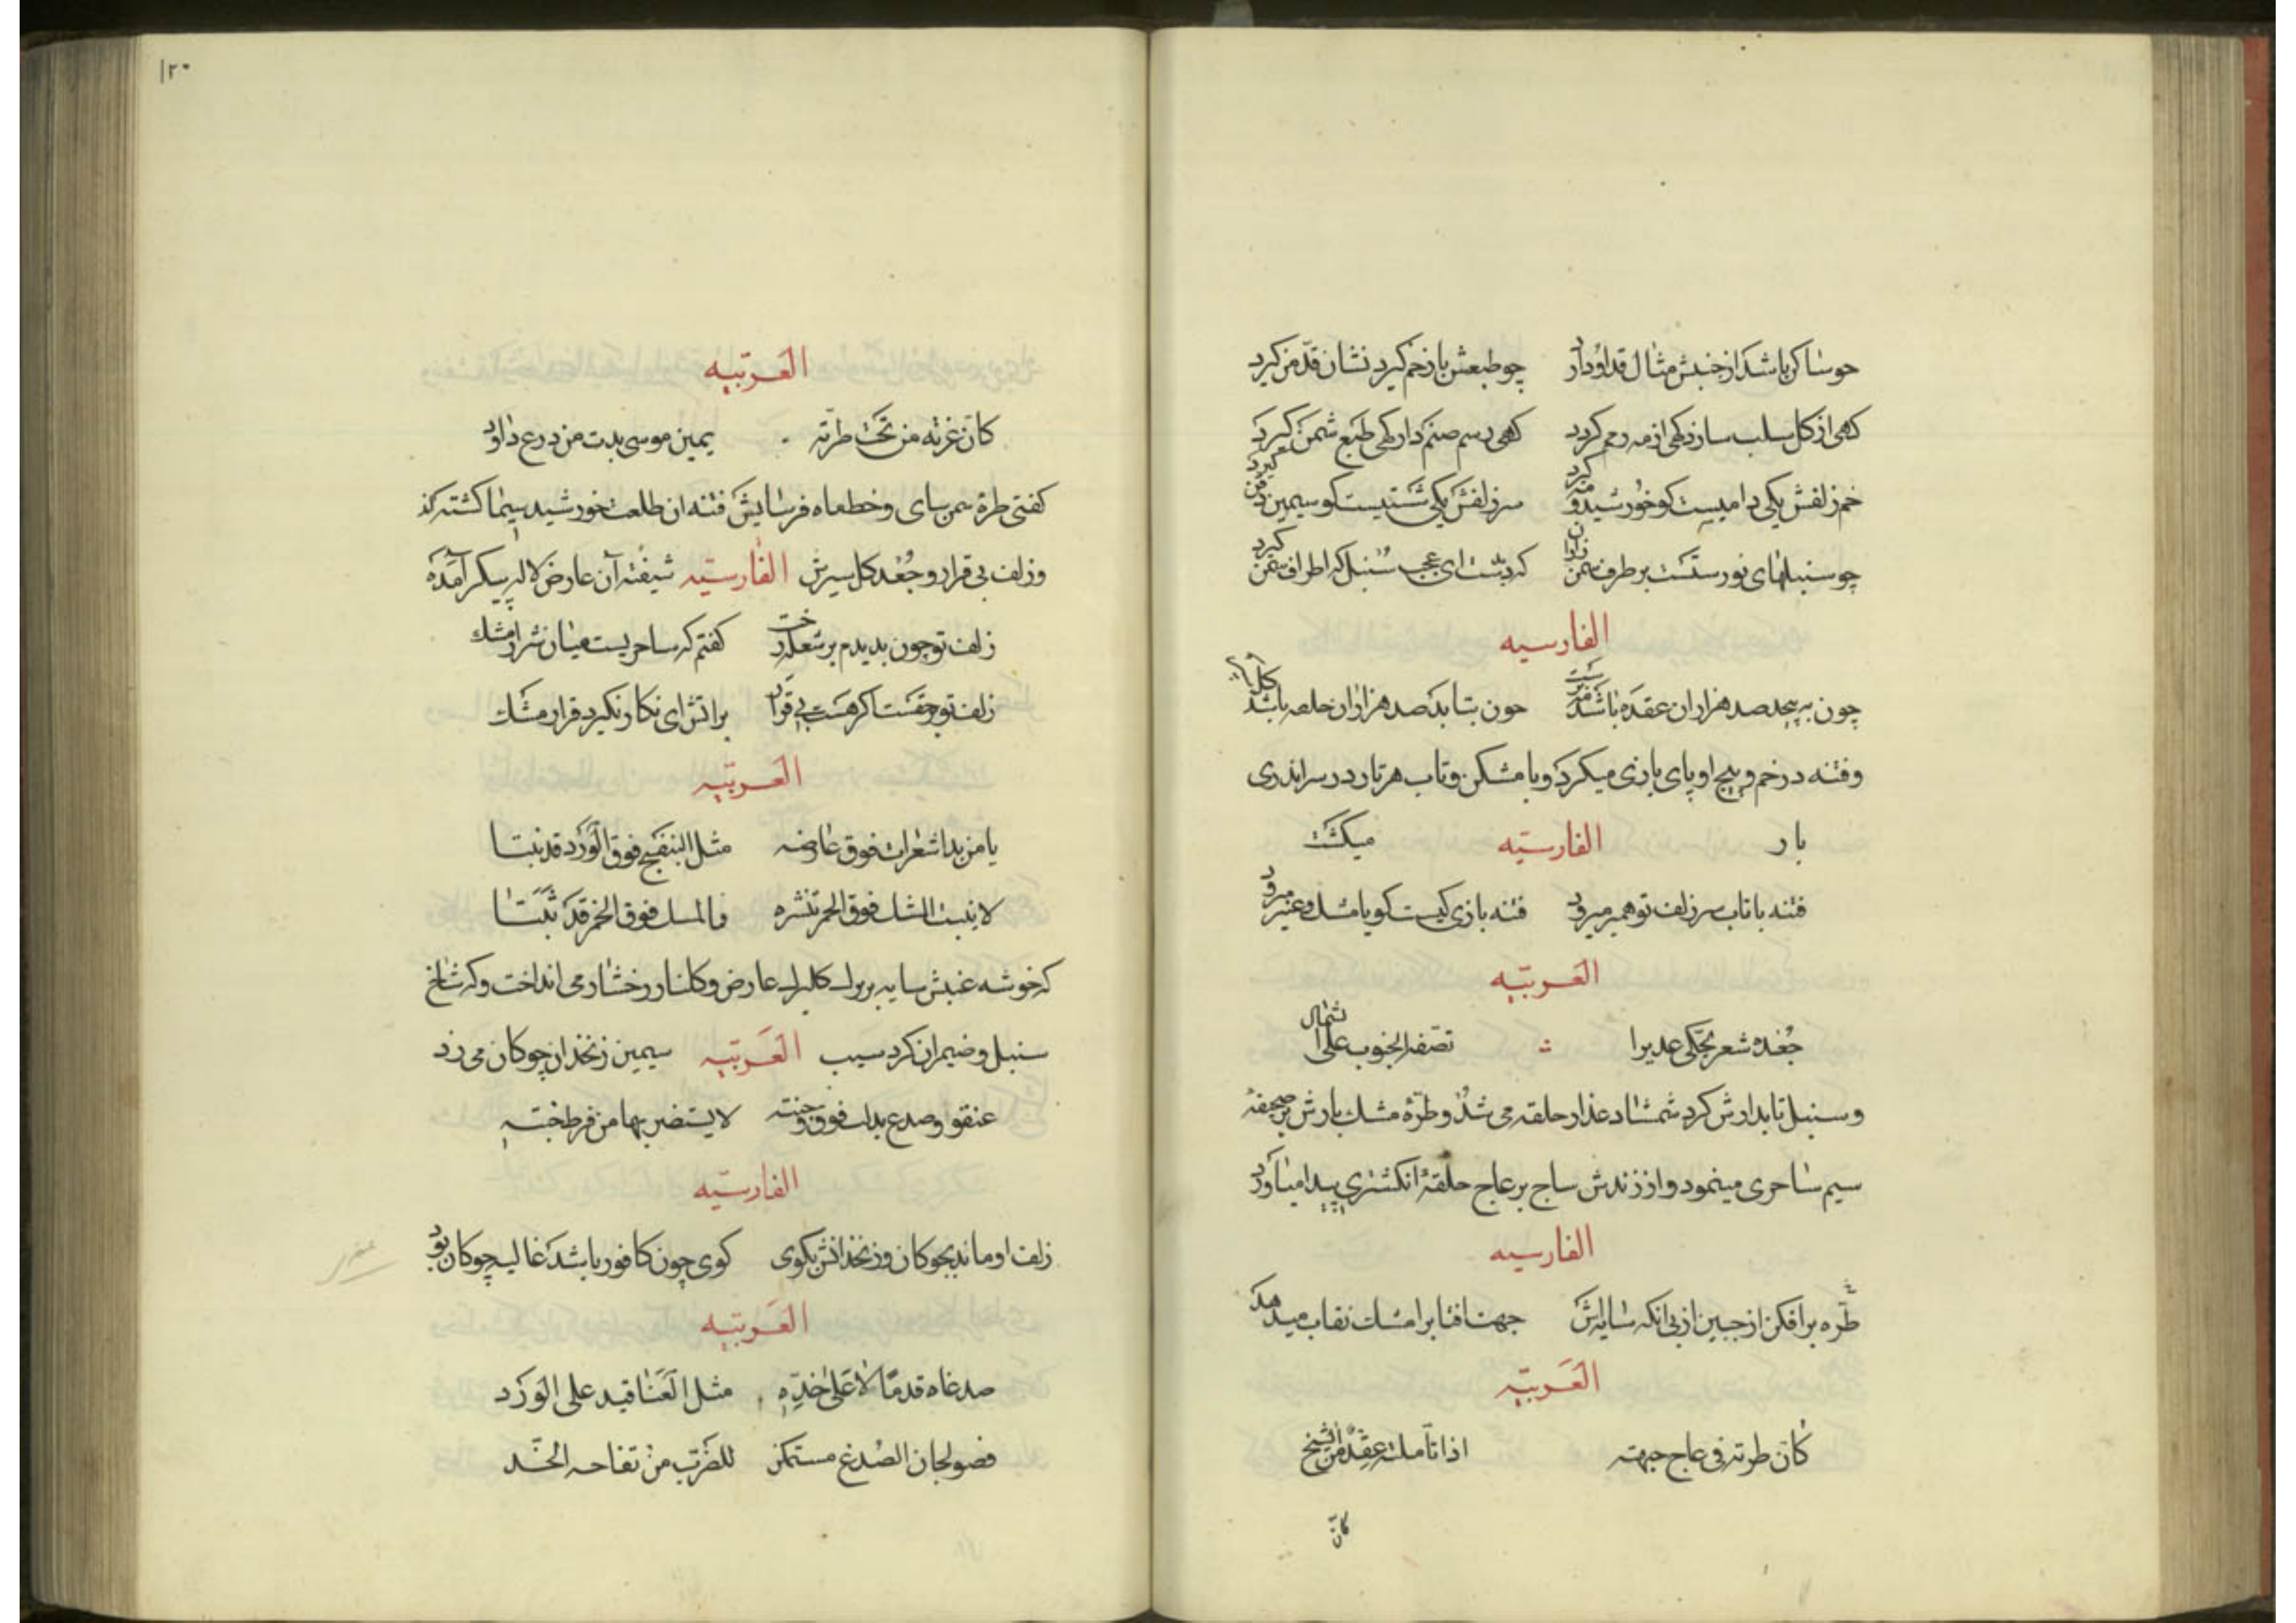 چو ساکن باشد از جنبش مثال قد او دارد چو طبعش باز خم گیرد نشان قد من گیرد
کهی از کل سلب سازد کهی از مه کرد کهی رسم صنم دارد کهی طبع شمن کیرد
خم زلفش یکی دامیست کو خورشید و مه کیرد سر زلفش یکی شستیست کو سیمین ذقن کیرد
چو سنبلهای نورستست بر طرف سمن زان که دیدست ای عجب سنبل که اطراف سمن کیرد
الفارسیه
چون به پیچد صد هزاران عقده باشد چون بتابد صد هزاران حلقه باشد
و فتنه در خم و پیچ او پای بازی میکرد و با مشکن و تاب هر تار در سر اندازی
بار الفارسیه میکشت
فتنه با تاب سر زلف تو همبر میرود فتنه بازی کیست کو با مشک و عنبر میرود
العربیه
جعده شعر یحکی غدیرا تصفه الجنوب علی الشمال
و سنبل تابدارش کرد شمشاد عذار حلقه می شد و طره مشک بارش بر صحیفهٔ
سیم ساحری مینمود و از زندش ساج بر عاج حلقهٔ انکشتری پیدا میاورد
الفارسیه
طره برافکن از جبین از پی آنکه سایه‌اش جهت افتاب را مشک نقاب میدهد
العربیه
کان طرته فی عاج جبهته اذا تأملته عقد من السبج
کان
۱۲۰
العربیه
کان غرته من تحت طرته یمین موسی بدت من درع داود
کفتی طرهٔ سمن سای و خط ماه فرسایش فتنه آن طلعت خورشید سیما کشته کذ
و زلف بی قرار و جعد کل سیرش الفارسیه شیفته آن عارض لاله پیکر آمده
زلف تو چون بدیدم بر شعله رخت کفتم که ساحریست میان شرار مشک
زلف تو چقست اکر هست بی قرار بر اتش ای نکار نکیرد قرار مشک
العربیه
یا من بدا شعرات فوق عارضه مثل البنفسج فوق الورد قد نبتا
لا یثبت المشک فوق الجمر تنشره فالمسک فوق الخمر قد ثبتا
که خوشه عنبش سایه بر برک کلبرک عارض و کلنار رخسار می انداخت و که شاخ
سنبل و ضیمران کرد سیب العربیه سیمین زنخدان چوکان می زد
عنقود صدغ بدا فوق وجنته لا یستضر بها من فرط خجلته
الفارسیه
زلف او ماند بچوکان و زنخدانش بکوی کوی چون کافور باشد غالیه چوکان بود
العربیه
صدغاه قد مالا علی خده مثل العناقید علی الورد
فصولجان الصدغ مستمکن للضرب من تفاحه الخد